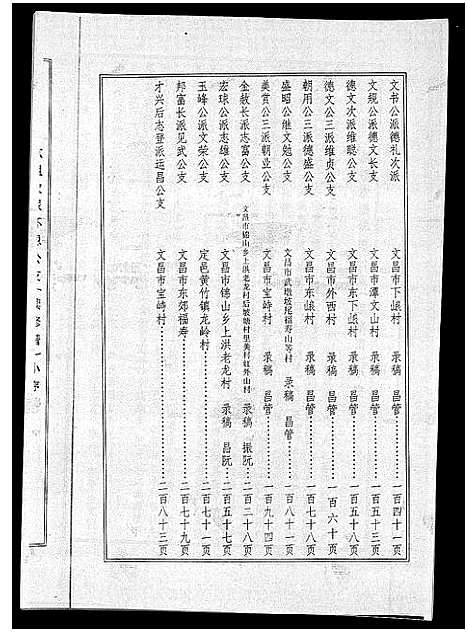 文书公派德礼次派 文昌市下崀村……………一百四十一页
文绲公派德文长支 文昌市潭文山村……………一百五十三页
德文次派维聪公支 文昌市东下崀村……………一百五十八页
德文公三派维贞公支 文昌市外西村 录稿 昌管……………一百六十页
朝用公三派德盛公支 文昌市东崀村 录稿 昌管……………一百七十八页
盛昭公继文勉公支 文昌市武墩坡尾福寿山等村 录稿 昌管……………一百八十一页
美赏公三派朝业公支 文昌市宝峙村 录稿 昌管……………一百九十四页
金敖长派志富公支 文昌市锦山乡上洪老龙村后坡塘村里美村虹外山村 录稿 振阮……………二百二十八页
宏球公派志雄公支 文昌市锦山乡上洪老龙村 录稿 昌阮……………二百五十七页
玉峰公派文荣公支 定邑黄竹镇龙岭村……………二百七十一页
邦富长派见武公支 文昌市东郊福寿……………二百七十九页
才兴后志登派运昌公支 文昌市宝峙村……………二百八十三页